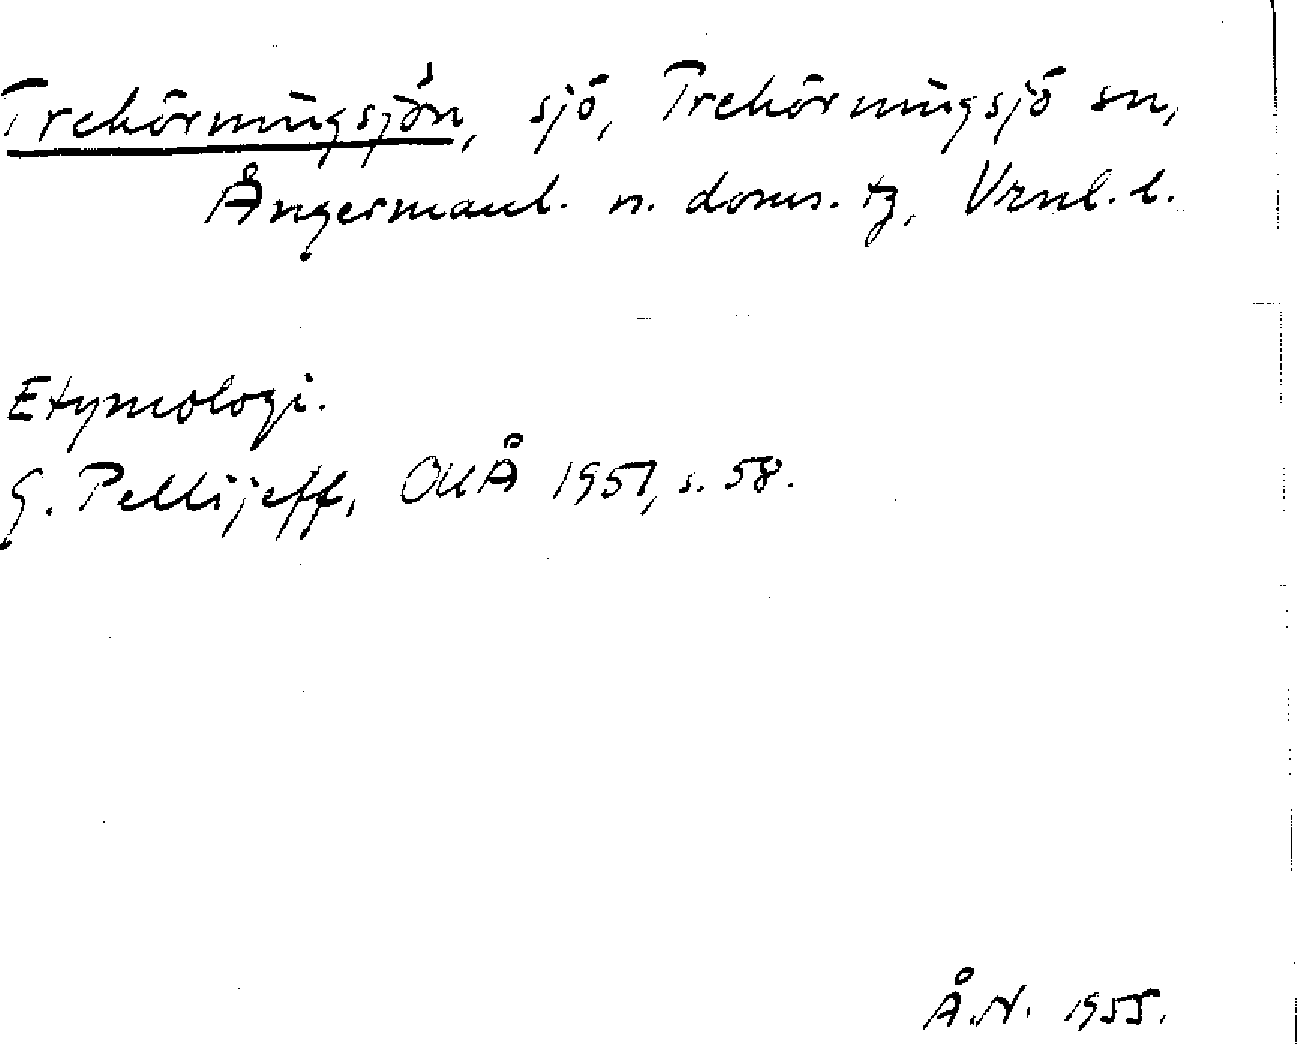 Trehörningsjön, sjö, Trehörningsjö sn,
Ångermanl. n. doms. tg, Vrnl. l.
Etymologi.
G. Pellijeff, OUÅ 1951, s. 58.
Å.N. 1955.